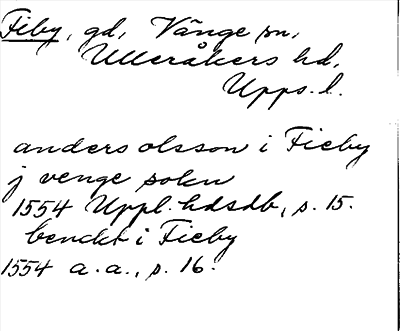 Fiby, gd, Vänge sn,
Ulleråkers hd,
Upps. l.
anders olsson i Fieby
j venge sokn
1554 Uppl. hdsdb, s. 15.
bendet i Fieby
1554 a.a., s. 16.